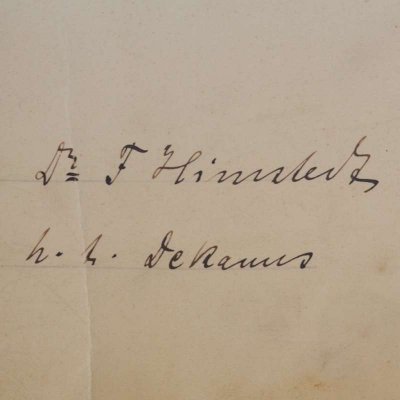 Dr F Himstedt
h. t. Dekanus